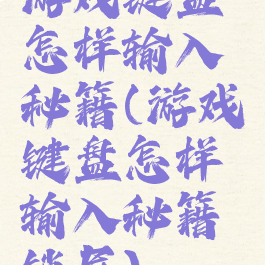 游戏键盘
怎样输入
秘籍(游戏
键盘怎样
输入秘籍